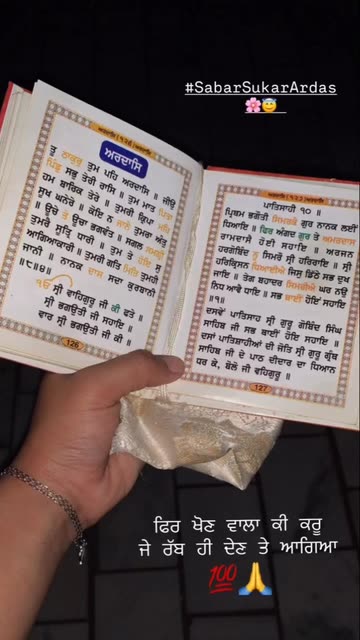 #SabarSukarArdas
🌸😇
ਅਰਦਾਸਿ | ੧੨੬ | ਅਰਦਾਸਿ
ਅਰਦਾਸਿ
ਤੂ ਠਾਕੁਰੁ ਤੁਮ ਪਹਿ ਅਰਦਾਸਿ ॥ ਜੀਉ
ਪਿੰਡੁ ਸਭੁ ਤੇਰੀ ਰਾਸਿ ॥ ਤੁਮ ਮਾਤ ਪਿਤਾ
ਹਮ ਬਾਰਿਕ ਤੇਰੇ ॥ ਤੁਮਰੀ ਕ੍ਰਿਪਾ ਮਹਿ
ਸੂਖ ਘਨੇਰੇ ॥ ਕੋਇ ਨ ਜਾਨੈ ਤੁਮਰਾ ਅੰਤੁ
॥ ਊਚੇ ਤੇ ਊਚਾ ਭਗਵੰਤ ॥ ਸਗਲ ਸਮਗ੍ਰੀ
ਤੁਮਰੈ ਸੂਤ੍ਰਿ ਧਾਰੀ ॥ ਤੁਮ ਤੇ ਹੋਇ ਸੁ
ਆਗਿਆਕਾਰੀ ॥ ਤੁਮਰੀ ਗਤਿ ਮਿਤਿ ਤੁਮਹੀ
ਜਾਨੀ ॥ ਨਾਨਕ ਦਾਸ ਸਦਾ ਕੁਰਬਾਨੀ
॥੮॥੪॥
ੴ ਸ੍ਰੀ ਵਾਹਿਗੁਰੂ ਜੀ ਕੀ ਫਤਹ ॥
ਸ੍ਰੀ ਭਗਉਤੀ ਜੀ ਸਹਾਇ ॥
ਵਾਰ ਸ੍ਰੀ ਭਗਉਤੀ ਜੀ ਕੀ ॥
126
ਅਰਦਾਸਿ | ੧੨੭ | ਅਰਦਾਸਿ
ਪਾਤਿਸਾਹੀ ੧੦ ॥
ਪ੍ਰਿਥਮ ਭਗੌਤੀ ਸਿਮਰਕੈ ਗੁਰ ਨਾਨਕ ਲਈਂ
ਧਿਆਇ ॥ ਫਿਰ ਅੰਗਦ ਗੁਰ ਤੇ ਅਮਰਦਾਸੁ
ਰਾਮਦਾਸੈ ਹੋਈ ਸਹਾਇ ॥ ਅਰਜਨ
ਹਰਗੋਬਿੰਦ ਨੂੰ ਸਿਮਰੋ ਸ੍ਰੀ ਹਰਿਰਾਇ ॥ ਸ੍ਰੀ
ਹਰਿਕ੍ਰਿਸਨ ਧਿਆਈਐ ਜਿਸੁ ਡਿੱਠੇ ਸਭ ਦੁਖ
ਜਾਇ ॥ ਤੇਗ ਬਹਾਦਰ ਸਿਮਰੀਐ ਘਰ ਨਉ
ਨਿਧ ਆਵੈ ਧਾਇ ॥ ਸਭ ਥਾਈਂ ਹੋਇ ਸਹਾਇ
॥੧॥
ਦਸਵੇਂ ਪਾਤਿਸਾਹ ਸ੍ਰੀ ਗੁਰੂ ਗੋਬਿੰਦ ਸਿੰਘ
ਸਾਹਿਬ ਜੀ ਸਭ ਥਾਈਂ ਹੋਇ ਸਹਾਇ ॥
ਦਸਾਂ ਪਾਤਿਸਾਹੀਆਂ ਦੀ ਜੋਤਿ ਸ੍ਰੀ ਗੁਰੂ ਗ੍ਰੰਥ
ਸਾਹਿਬ ਜੀ ਦੇ ਪਾਠ ਦੀਦਾਰ ਦਾ ਧਿਆਨ
ਧਰ ਕੇ, ਬੋਲੋ ਜੀ ਵਾਹਿਗੁਰੂ ॥
127
ਫਿਰ ਖੋਣ ਵਾਲਾ ਕੀ ਕਰੂ
ਜੇ ਰੱਬ ਹੀ ਦੇਣ ਤੇ ਆਗਿਆ
💯🙏